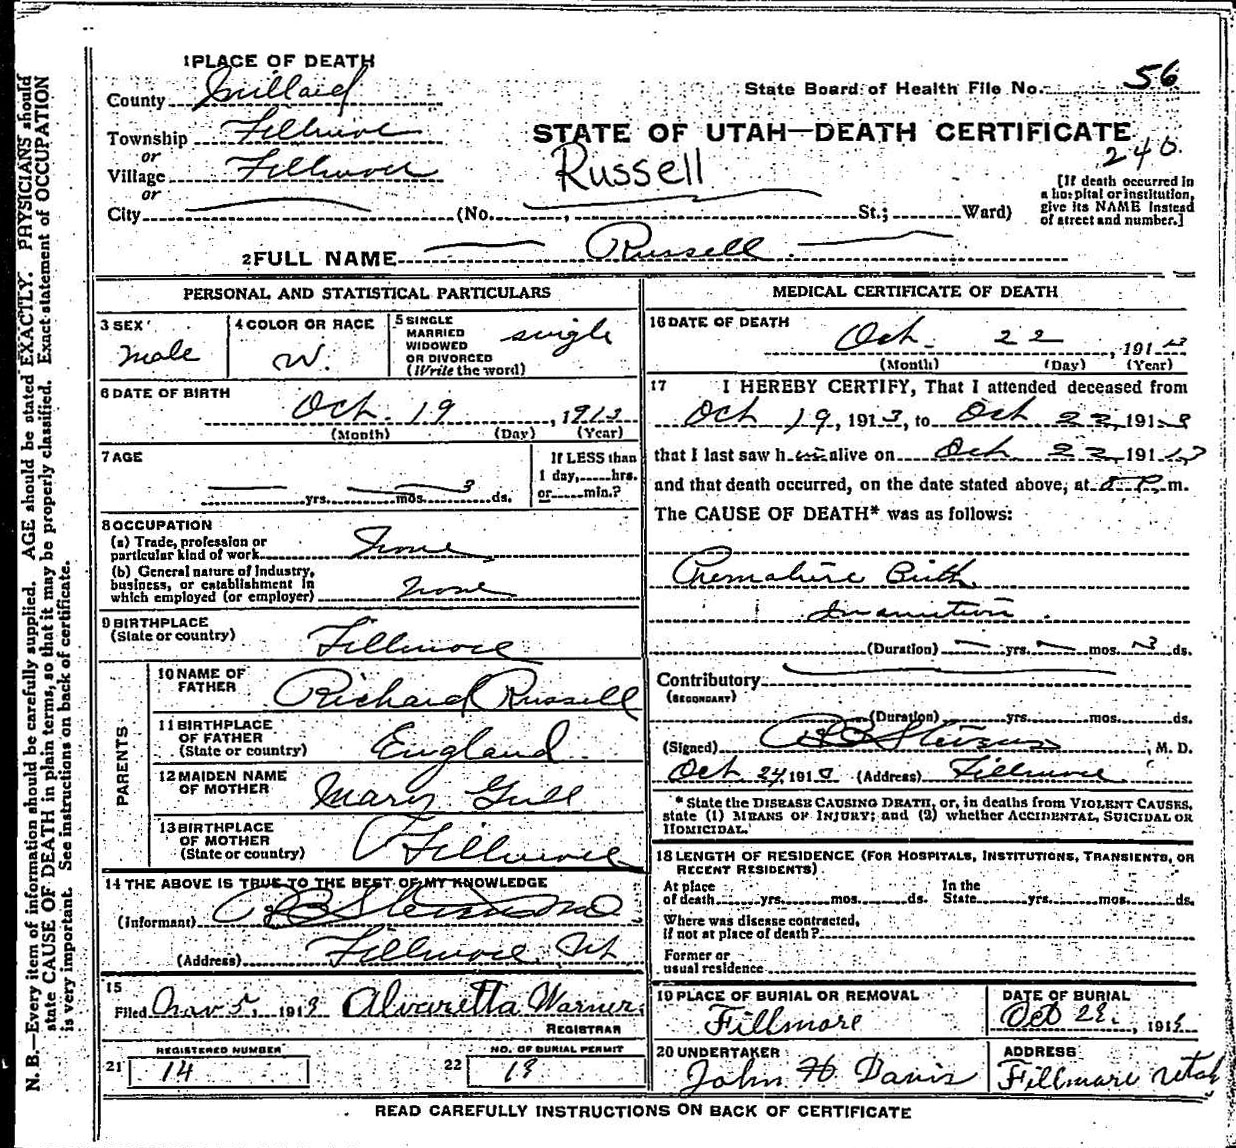 1 PLACE OF DEATH
County Millard
State Board of Health File No. 56
Township Fillmore
STATE OF UTAH—DEATH CERTIFICATE
or
240
Village Fillmore
Russell
or
City (No. , St.; Ward)
[If death occurred in
a hospital or institution,
give its NAME instead
of street and number.]
2 FULL NAME Russell
PERSONAL AND STATISTICAL PARTICULARS
3 SEX
male
4 COLOR OR RACE
W.
5 SINGLE
MARRIED
WIDOWED
OR DIVORCED
(Write the word)
single
6 DATE OF BIRTH
Oct. 19, 1913
(Month) (Day) (Year)
7 AGE
yrs. mos. 3 ds.
If LESS than
1 day, hrs.
or min.?
8 OCCUPATION
(a) Trade, profession or
particular kind of work None
(b) General nature of industry,
business, or establishment in
which employed (or employer) None
9 BIRTHPLACE
(State or country) Fillmore
PARENTS
10 NAME OF
FATHER Richard Russell
11 BIRTHPLACE
OF FATHER
(State or country) England
12 MAIDEN NAME
OF MOTHER Mary Gull
13 BIRTHPLACE
OF MOTHER
(State or country) Fillmore
14 THE ABOVE IS TRUE TO THE BEST OF MY KNOWLEDGE
(Informant) Stevens MD
(Address) Fillmore, Ut
15
Filed Nov 5, 1913 Alvaretta Warner
REGISTRAR
REGISTERED NUMBER
21 14
NO. OF BURIAL PERMIT
22 19
MEDICAL CERTIFICATE OF DEATH
16 DATE OF DEATH
Oct. 22, 1913
(Month) (Day) (Year)
17 I HEREBY CERTIFY, That I attended deceased from
Oct 19, 1913, to Oct 22, 1913
that I last saw him alive on Oct 22, 1913
and that death occurred, on the date stated above, at 8 P. m.
The CAUSE OF DEATH* was as follows:
Premature Birth
Inanition.
(Duration) yrs. mos. 3 ds.
Contributory
(SECONDARY)
(Duration) yrs. mos. ds.
(Signed) Stevens, M. D.
Oct 24, 191 (Address) Fillmore
* State the DISEASE CAUSING DEATH, or, in deaths from VIOLENT CAUSES,
state (1) MEANS OF INJURY; and (2) whether ACCIDENTAL, SUICIDAL OR
HOMICIDAL.
18 LENGTH OF RESIDENCE (FOR HOSPITALS, INSTITUTIONS, TRANSIENTS, OR
RECENT RESIDENTS)
At place
of death yrs. mos. ds.
In the
State yrs. mos. ds.
Where was disease contracted,
if not at place of death?
Former or
usual residence
19 PLACE OF BURIAL OR REMOVAL
Fillmore
DATE OF BURIAL
Oct 23, 191
20 UNDERTAKER
John H Davis
ADDRESS
Fillmore Utah
READ CAREFULLY INSTRUCTIONS ON BACK OF CERTIFICATE
N. B.—Every item of information should be carefully supplied. AGE should be stated EXACTLY. PHYSICIANS should
state CAUSE OF DEATH in plain terms, so that it may be properly classified. Exact statement of OCCUPATION
is very important. See instructions on back of certificate.